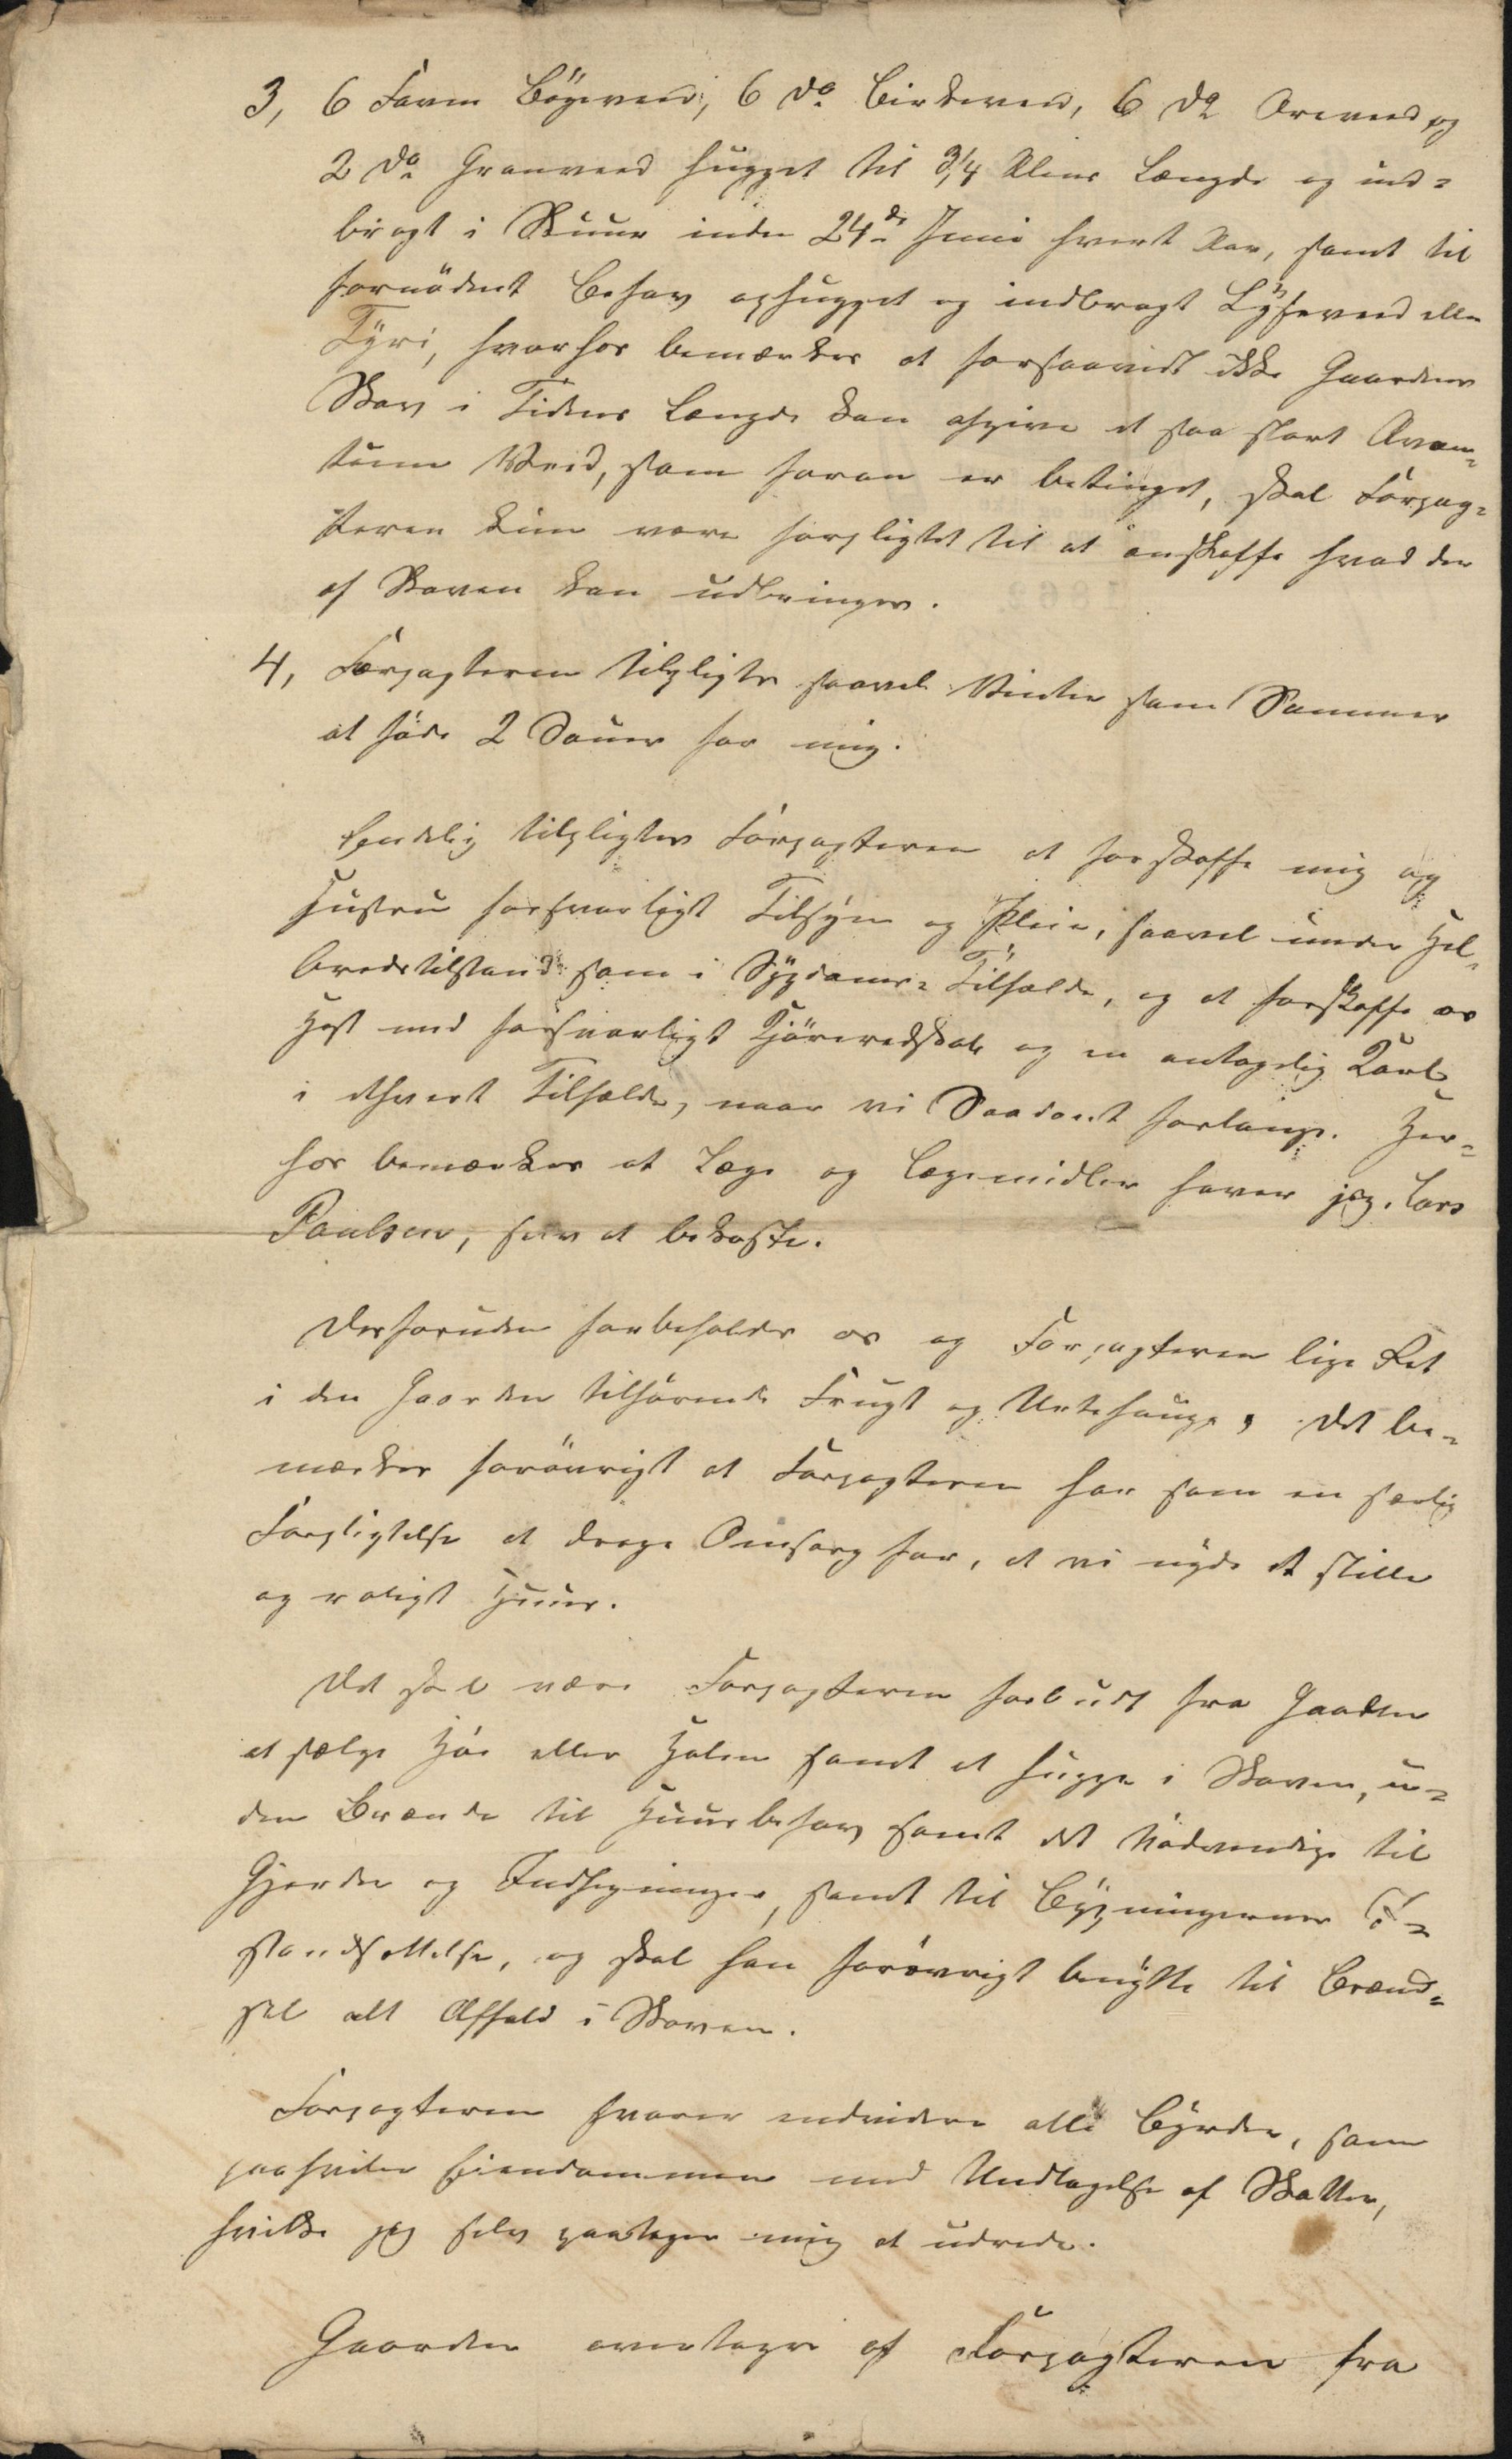 3, 6 Favne Bögeveed, 6 do Birkeveed, 6 do Oreveed og
2 do Granveed hugget til 3/4 Alens Længde og ind-
bragt i Skuur inden 24de Juni hvert Aar, samt til
fornödent Behov ophugget og indbragt Lyseveed eller
Tyri, hvorhos bemærkes at forsaavidt ikke Gaardens
Skov i Tidens Længde kan afgive et saa stort Qvan-
tum Veed, som foran er betinget, skal Forpag-
teren kun være forpligtet til at anskaffe hvad der
af Skoven kan udbringes.
4, Forpagteren tilpligtes saavel Vinter som Sommer
at föde 2 Sauer for mig.
Endelig tilpligtes Forpagteren at forskaffe mig og
Hustru forsvarligt Tilsyn og Pleie, saavel under Hel-
bredstilstand som i Sygdoms-Tilfælde, og at forskaffe os
Hest med forsvarligt Kjöreredskab og en antagelig Karl
i ethvert Tilfælde, naar vi Saadant forlange. Her-
hos bemærkes at Læge og Lægemidler haver jeg, Lars
Paulsen, selv at bekoste.
Desforuden forbeholdes os og Forpagteren lige Ret
i den Gaarden tilhörende Frugt og Urtehauge, det be-
mærkes forövrigt at Forpagteren har som en særlig
Forpligtelse at drage Omsorg for, at vi nyde et stille
og roligt Huus.
Det skal være Forpagteren forbudt fra Gaarden
at sælge Höe eller Halm samt at hugge i Skoven, u-
den Brænde til Huusbehov samt det Nödvendige til
Gjerder og Indhegninger, samt til Bygningernes I-
standsættelse, og skal han forövrigt benytte til Brænd-
sel alt Affald i Skoven.
Forpagteren svarer endvidere alle Byrder, som
paahviler Eiendommen med Undtagelse af Skatter,
hvilke jeg selv paatager mig at udrede.
Gaarden overtages af Forpagteren fra